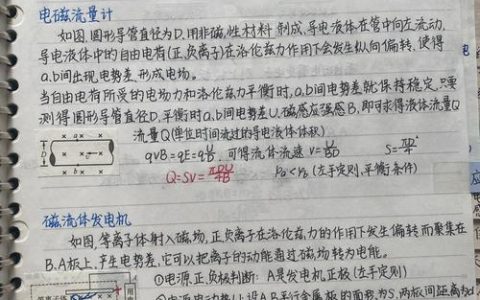 电磁流量计
如图,圆形导管直径为D,用非磁性材料制成,导电液体在管中向左流动,
导电液体中的自由电荷(正、负离子)在洛伦兹力作用下会发生纵向偏转,使得
a,b间出现电势差,形成电场。
当自由电荷所受的电场力和洛伦兹力平衡时,a,b间电势差就保持稳定,只要
测得圆形导管直径D,平衡时a,b间电势差U,磁感应强度B,即可求得液体流量Q
流量Q(单位时间流过的导电液体体积)
qvB=qE=q U/D, 可得流体流速 v=U/BD
Q=SV=πDU/4B
φa<φb (左手定则、平衡条件)
D
a
b
磁流体发电机
如图,等离子体射入磁场,正负离子在洛伦兹力的作用下发生偏转而聚集在
B,A板上,产生电势差,它可以把离子的动能通过磁场转为电能。
①电源正、负极判断: A是发电机正极(左手定则)